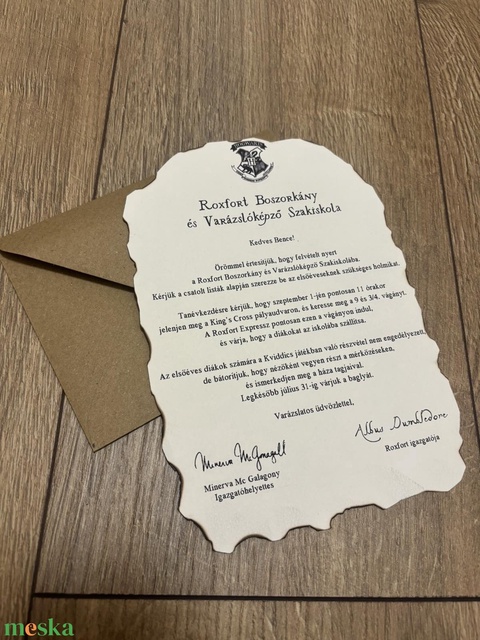 HOGWARTS
Roxfort Boszorkány
és Varázslóképző Szakiskola
Kedves Bence!
Örömmel értesítjük, hogy felvételt nyert
a Roxfort Boszorkány és Varázslóképző Szakiskolába.
Kérjük a csatolt listák alapján szerezze be az elsőéveseknek szükséges holmikat.
Tanévkezdésre kérjük, hogy szeptember 1-jén pontosan 11 órakor
jelenjen meg a King's Cross pályaudvaron, és keresse meg a 9 és 3/4. vágányt.
A Roxfort Expressz pontosan ezen a vágányon indul,
és várja, hogy a diákokat az iskolába szállítsa.
Az elsőéves diákok számára a Kviddics játékban való részvétel nem engedélyezett,
de bátorítjuk, hogy nézőként vegyen részt a mérkőzéseken,
és ismerkedjen meg a háza tagjaival.
Legkésőbb július 31-ig várjuk a baglyát.
Varázslatos üdvözlettel,
Minerva McGonagall
Albus Dumbledore
Minerva Mc Galagony
Igazgatóhelyettes
Roxfort igazgatója
meska